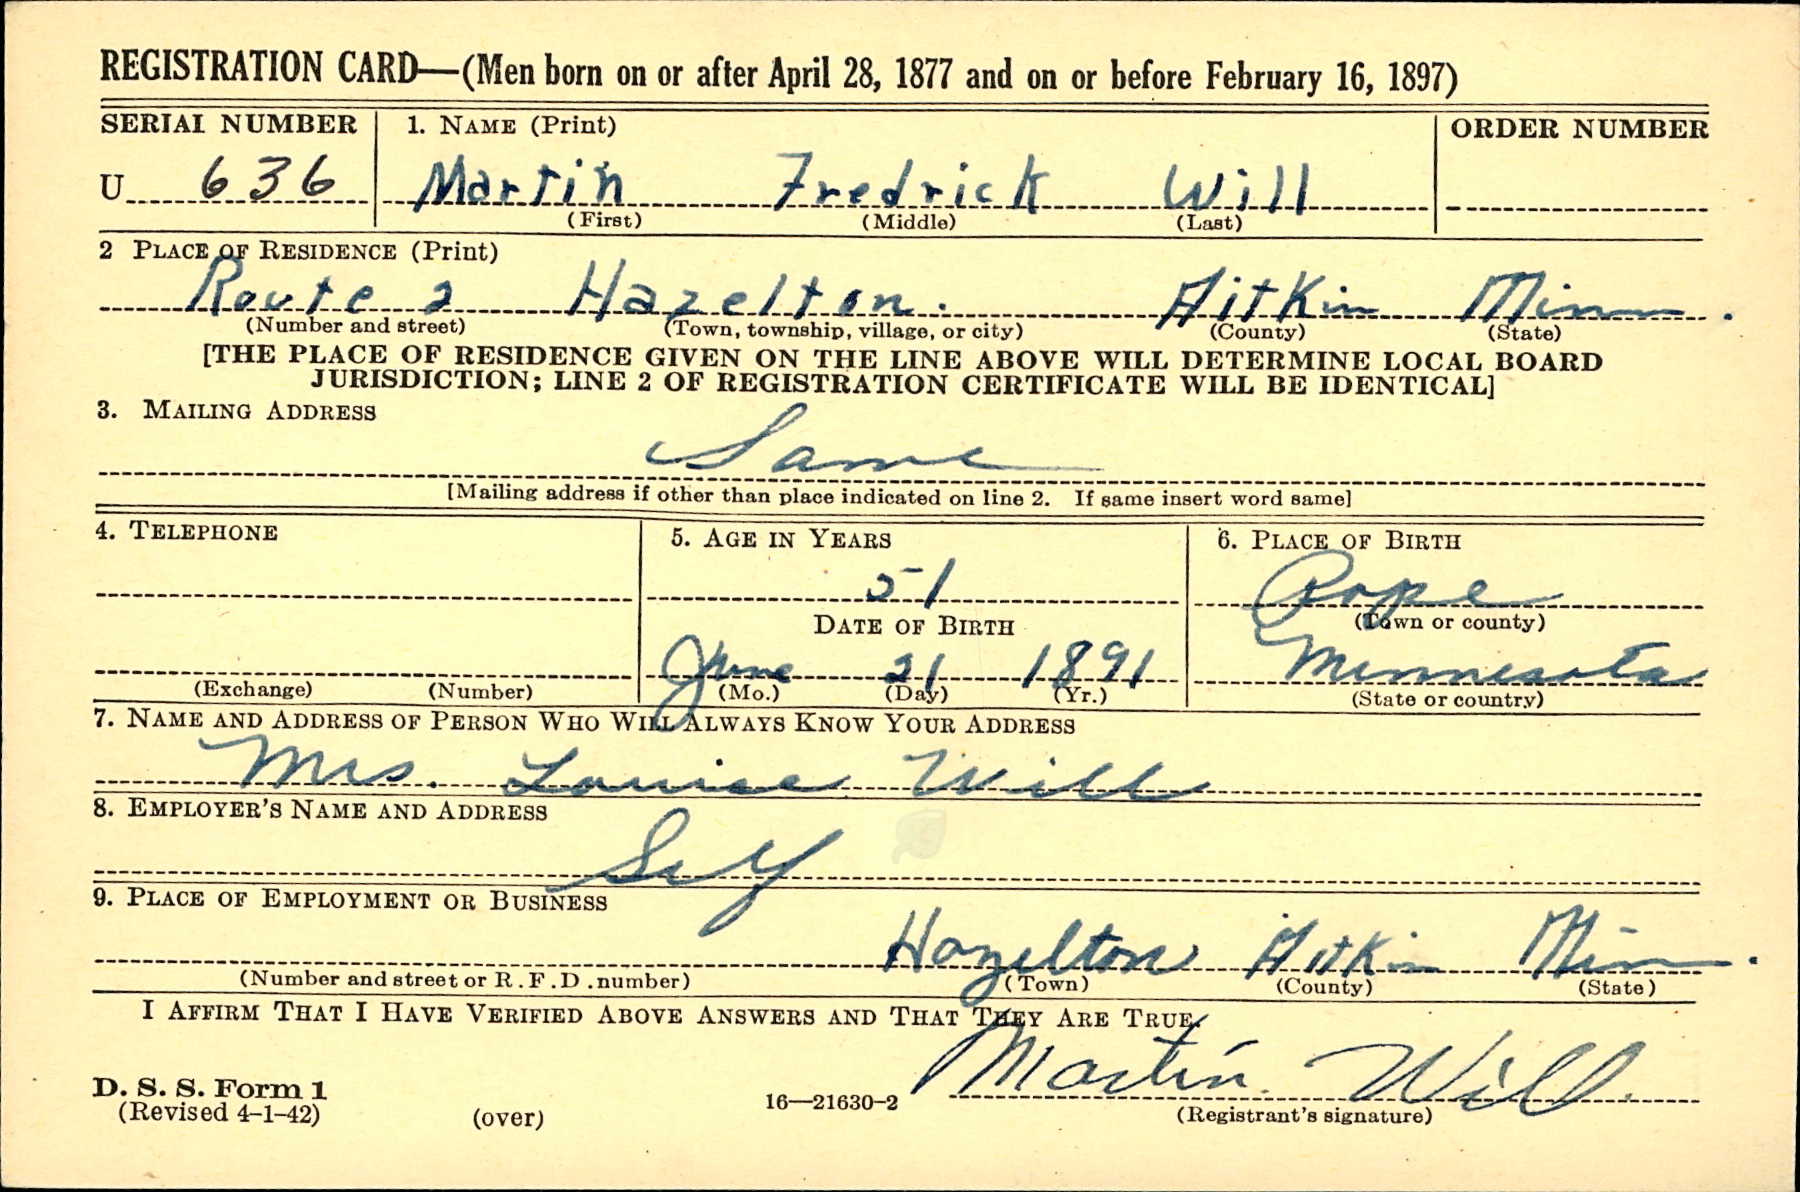 REGISTRATION CARD—(Men born on or after April 28, 1877 and on or before February 16, 1897)
SERIAL NUMBER 1. NAME (Print) ORDER NUMBER
U 636 Martin Fredrick Will
(First) (Middle) (Last)
2 PLACE OF RESIDENCE (Print)
Route 2 Hazelton. Aitkin Minn.
(Number and street) (Town, township, village, or city) (County) (State)
[THE PLACE OF RESIDENCE GIVEN ON THE LINE ABOVE WILL DETERMINE LOCAL BOARD
JURISDICTION; LINE 2 OF REGISTRATION CERTIFICATE WILL BE IDENTICAL]
3. MAILING ADDRESS
Same
[Mailing address if other than place indicated on line 2. If same insert word same]
4. TELEPHONE 5. AGE IN YEARS 6. PLACE OF BIRTH
51 Pope
DATE OF BIRTH (Town or county)
June 21 1891 Minnesota
(Exchange) (Number) (Mo.) (Day) (Yr.) (State or country)
7. NAME AND ADDRESS OF PERSON WHO WILL ALWAYS KNOW YOUR ADDRESS
Mrs. Louise Will
8. EMPLOYER'S NAME AND ADDRESS
Self
9. PLACE OF EMPLOYMENT OR BUSINESS
Hazelton Aitkin Minn.
(Number and street or R.F.D. number) (Town) (County) (State)
I AFFIRM THAT I HAVE VERIFIED ABOVE ANSWERS AND THAT THEY ARE TRUE.
Martin Will.
D. S. S. Form 1
(Revised 4-1-42) (over) 16—21630-2 (Registrant's signature)